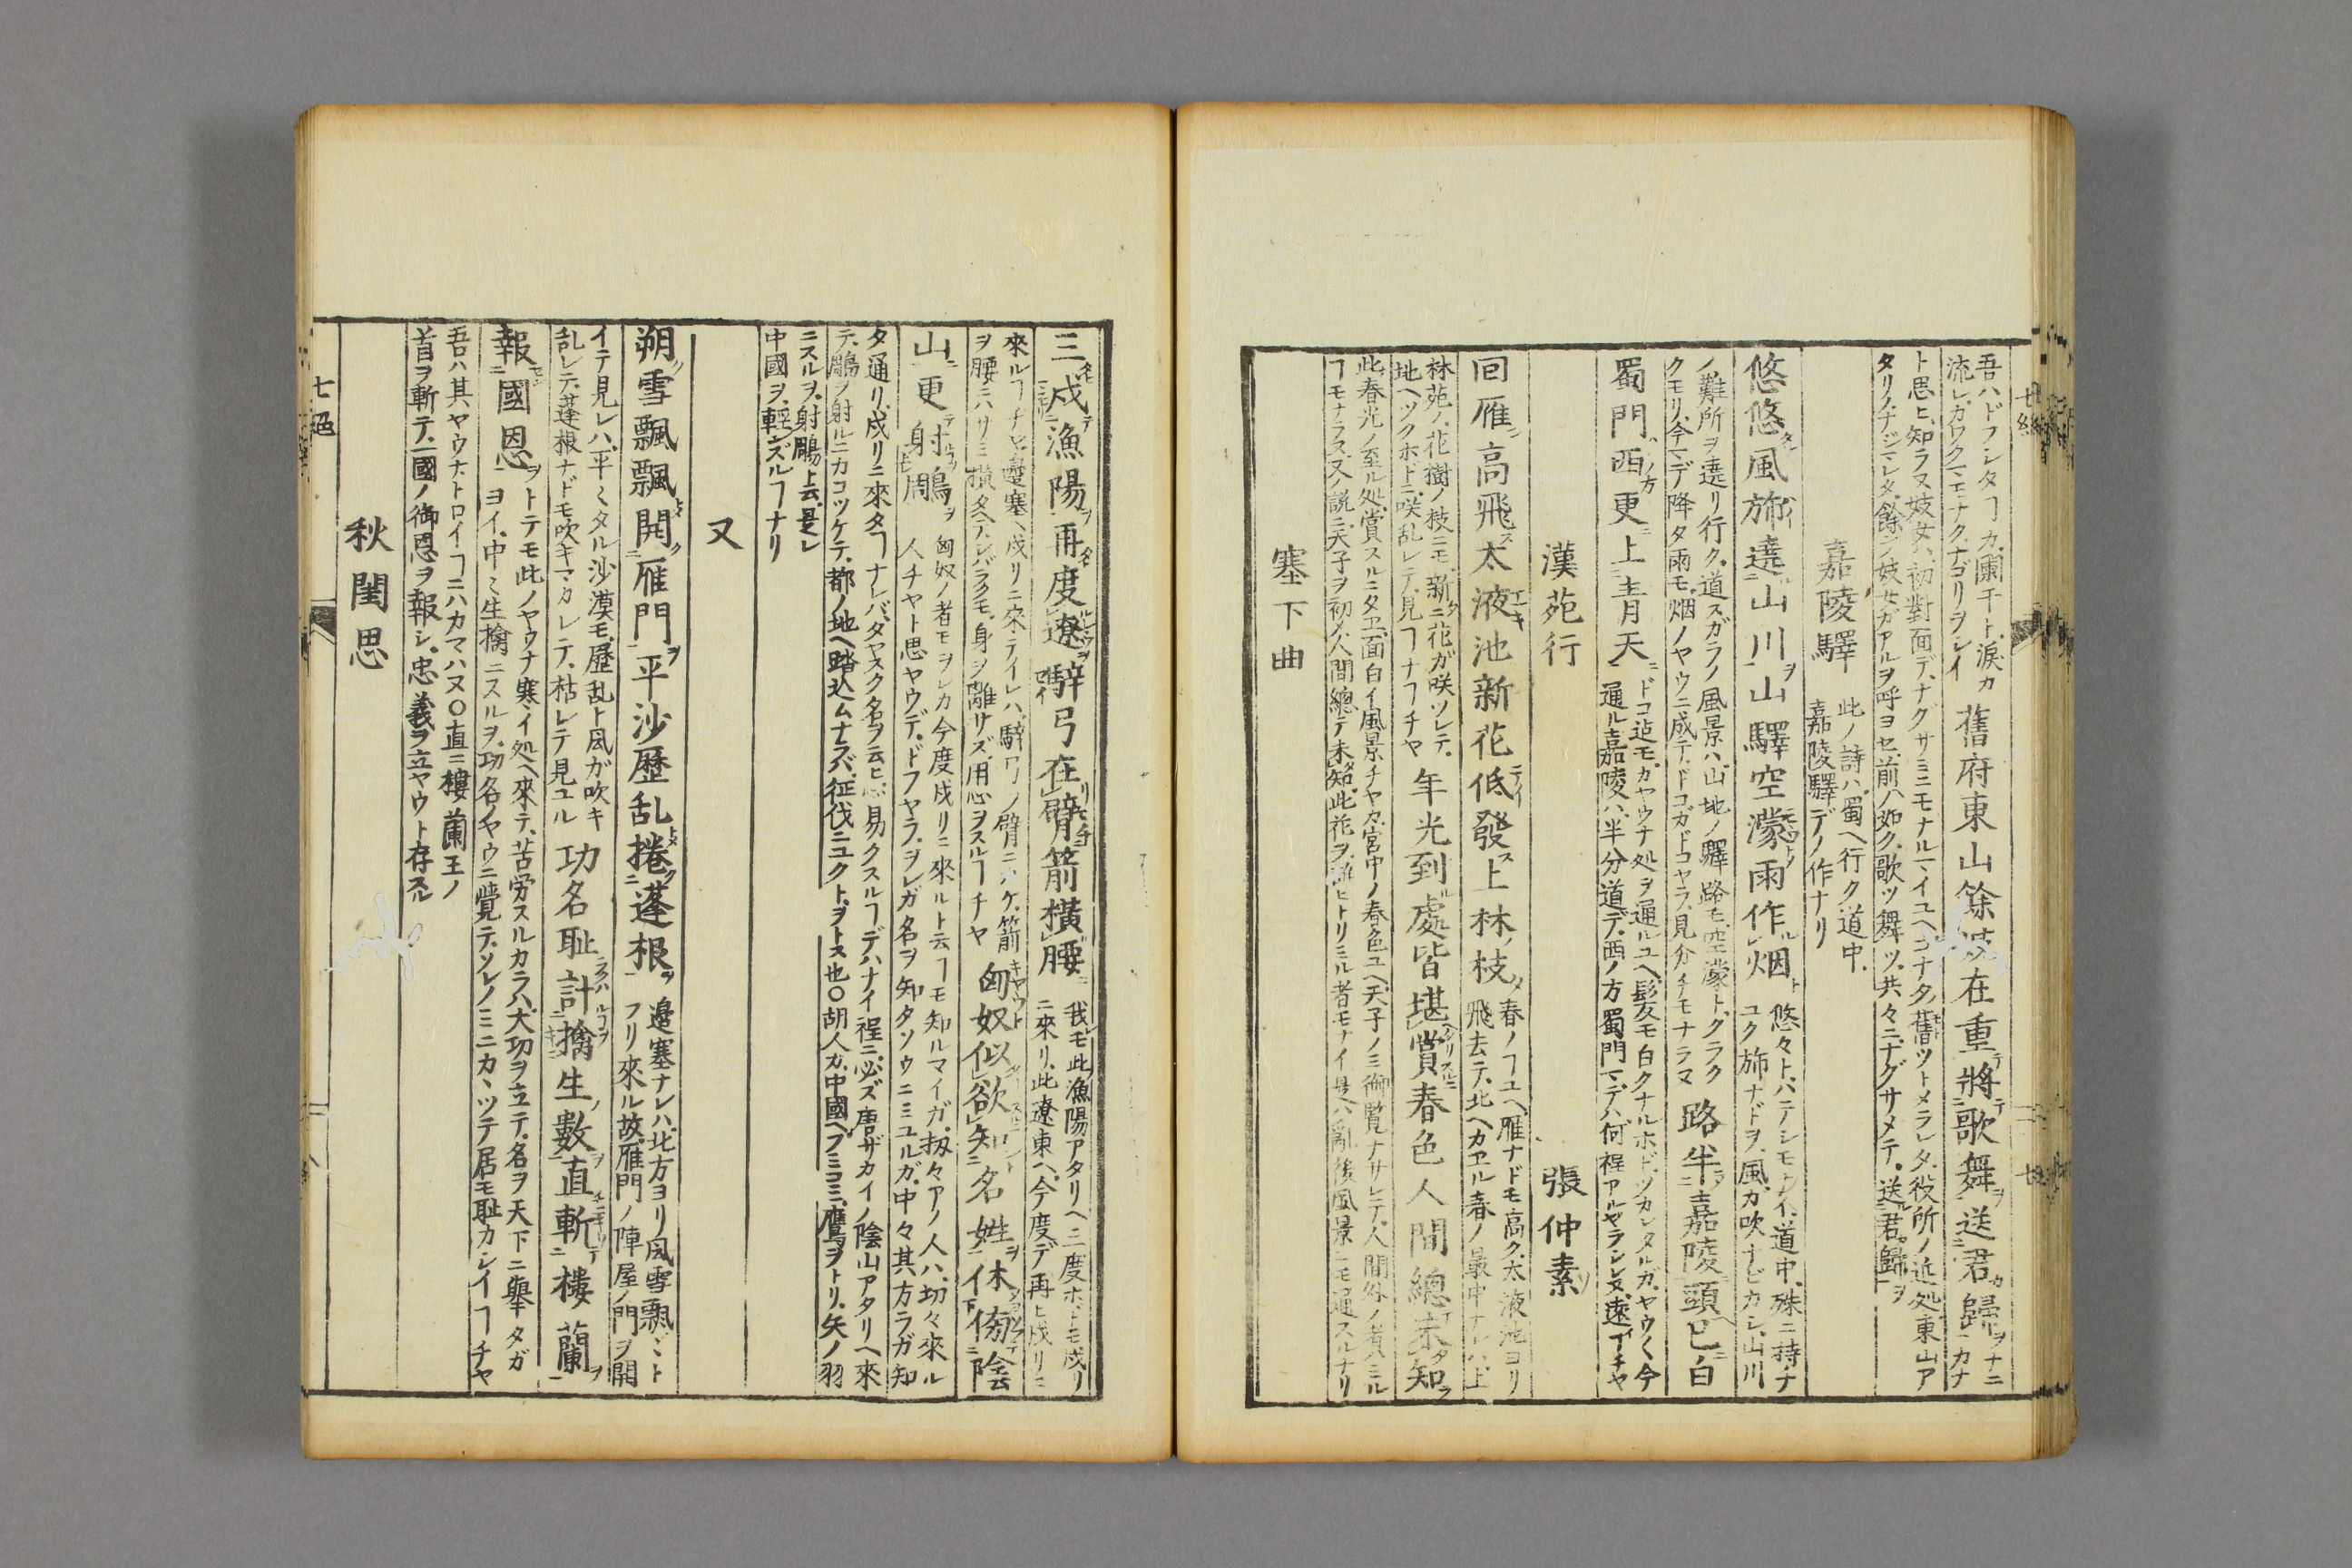 吾ハドフシタヿカ、闌干ト、淚カ
流レ、カワクマモナク、ナゴリヲシイ
舊府東山餘妓在重將歌舞送君歸
ト思ヒ、知ラヌ妓女ハ、初對面デ、ナグサミニモナルマイユヘ
タリ、ナジマレタ、餘ノ妓女ガアルヲ呼ヨセ、前ノ如ク、歌ツ舞ツ、共々ニ、ナグサメテ、送君歸ヲ
嘉陵驛
此ノ詩ハ、蜀ヘ行ク、道中、
嘉陵驛デノ作ナリ
悠悠風旆遶山川山驛空濛雨作烟
ノ難所ヲ遶リ行ク、道スガラノ風景ハ、山地ノ驛路モ、空濛ト、クラク
クモリ、今マデ降タ雨モ、烟ノヤウニ成テ、ドコガドコヤラ、見分チモナラヌ
路半嘉陵頭已白
蜀門西更上青天
ドコ迠モ、カヤウナ処ヲ通ルユヘ、髮モ白クナルホド、ツカレタルガ、ヤウ〱今
通ル嘉陵ハ、半分道デ、西ノ方蜀門マデハ、何程アルヤラ
漢苑行
張仲素
回雁高飛太液池新花低發上林枝
春ノヿユヘ、雁ナドモ高ク、太液池ヨリ
飛去テ、北ヘカヱル春ノ最中ナレハ、上
林苑ノ、花樹ノ枝ニモ、新ニ花ガ咲ソレテ、
地ヘツクホドニ、咲乱レテ、見ヿナヿチヤ
年光到處皆堪賞春色人間總未知
此春光ノ至ル処、賞スルニタヱ、面白イ風景チヤカ、宮中ノ春色ユヘ、天子ノミ御覧ナサレテ、人間外ノ者ハミル
ヿモナラヌ、又ノ説ニ、天子ヲ初メ人間總テ未知、此花ヲ、
塞下曲
三戍漁陽再度遼騂弓在臂箭橫腰
我モ此漁陽アタリヘ三度ホドモ戍リ
ニ來リ、此遼東ヘ、今度デ再ヒ戍リニ
來ルヿチヤ、邊塞ヘ戍リニ來テイレハ、騂弓ノ臂ニカケ、箭
ヲ腰ニハサミ橫タヘテ、シバラクモ、身ヲ離サズ、用心ヲスルヿチヤ
匈奴似欲知名姓休傍陰
山更射鵰
匈奴ノ者モヲレカ今度戍リニ來ルト云ヿモ知ルマイガ、扨々アノ人ハ、切々來ル
人チヤト思ヤウデ、ドフヤラ、ヲレガ名ヲ知タソウニミユルガ、中々其方ラガ知
タ通リ、戍リニ來タヿナレバ、タヤスク名ヲ云ヒ易クスルヿデハナイ程ニ、必ズ唐ザカイノ陰山アタリヘ來
テ、鵰ヲ射ルニカコツケテ、都ノ地ヘ踏込ムナラバ、征伐ニユクト、ヲトス也○胡人カ、中國ヘフミコミ、鷹ヲトリ、矢ノ羽
ニスルヲ、射鵰ト云、是レ
中國ヲ、輕ンズルヿナリ
又
朔雪飄飄開雁門平沙歷乱捲蓬根
邉塞ナレハ、北方ヨリ風雪飄々ト
フリ來ル故、雁門ノ陣屋ノ門ヲ開
イテ見レハ、平〱タル沙漠モ、歷乱ト風ガ吹キ
乱レテ、蓬根ナドモ吹キマカレテ、枯レテ見ユル
功名耻計擒生數直斬樓蘭
報國恩
トテモ此ノヤウナ寒イ処ヘ來テ、苦労スルカラハ、大功ヲ立テ、名ヲ天下ニ舉タガ
ヨイ、中〱生擒ニスルヲ、功名ノヤウニ覚テ、ソレノミニカヽツテ居モ耻カシイヿチヤ
吾ハ其ヤウナトロイヿニハカマハヌ○直ニ樓蘭王ノ
首ヲ斬テ、一國ノ御恩ヲ報シ、忠義ヲ立ヤウト存スル
秋閨思
七絕